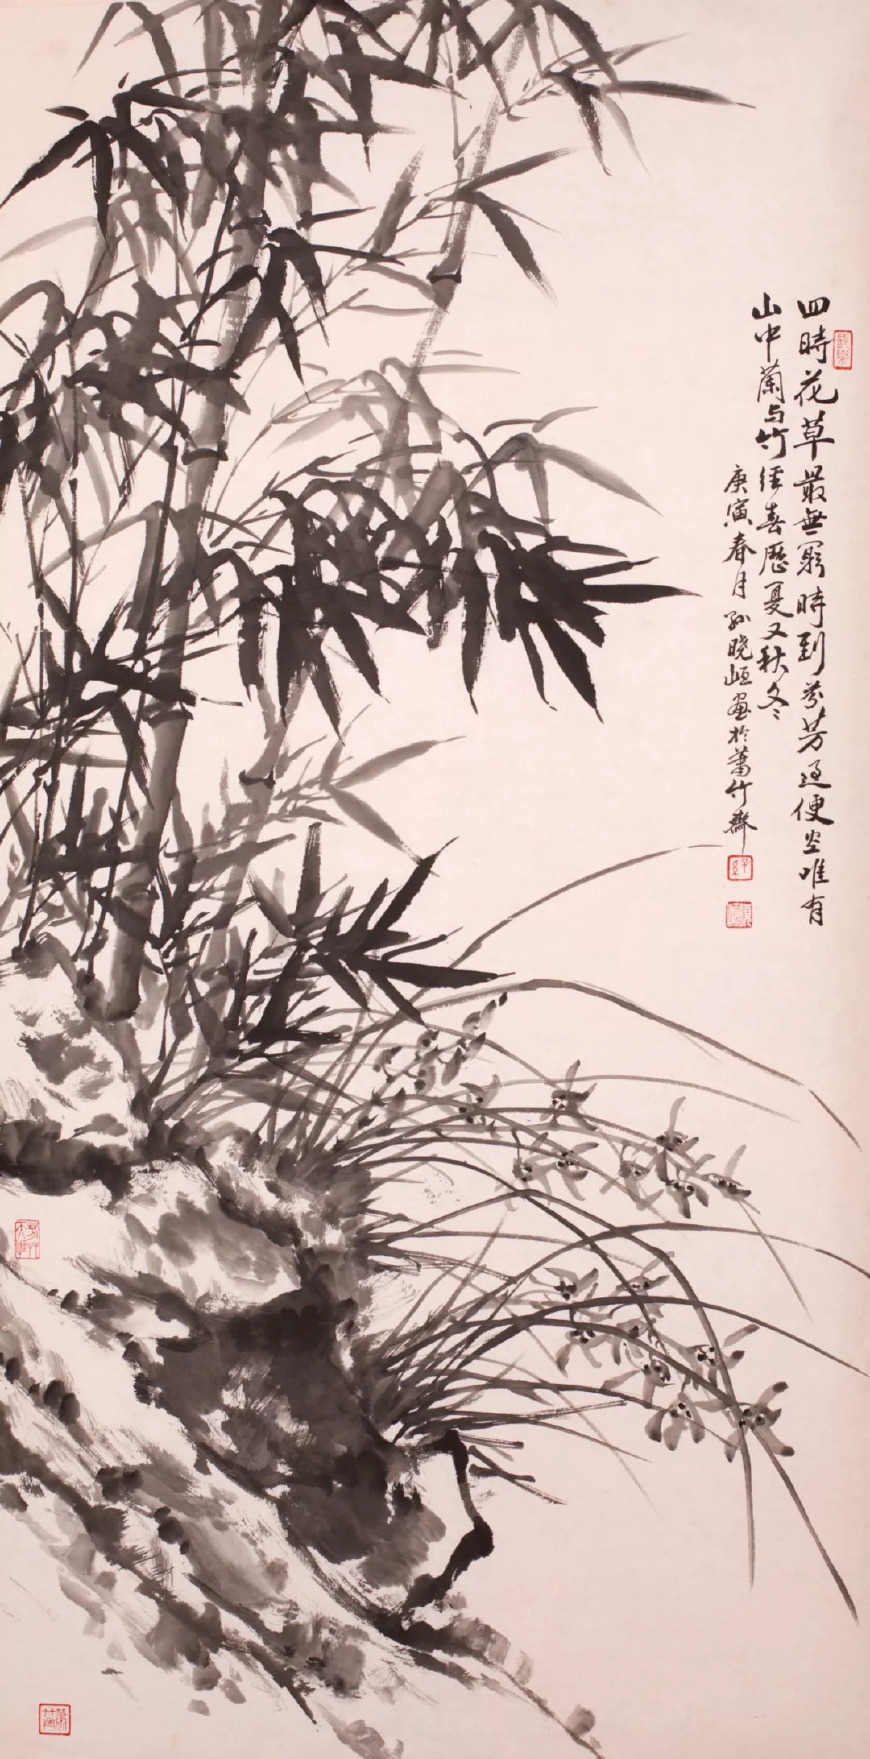 四時花草最無窮時到芬芳過便空唯有
山中蘭与竹經春歷夏又秋冬
庚寅春月孙晓峘画於蕭竹齋